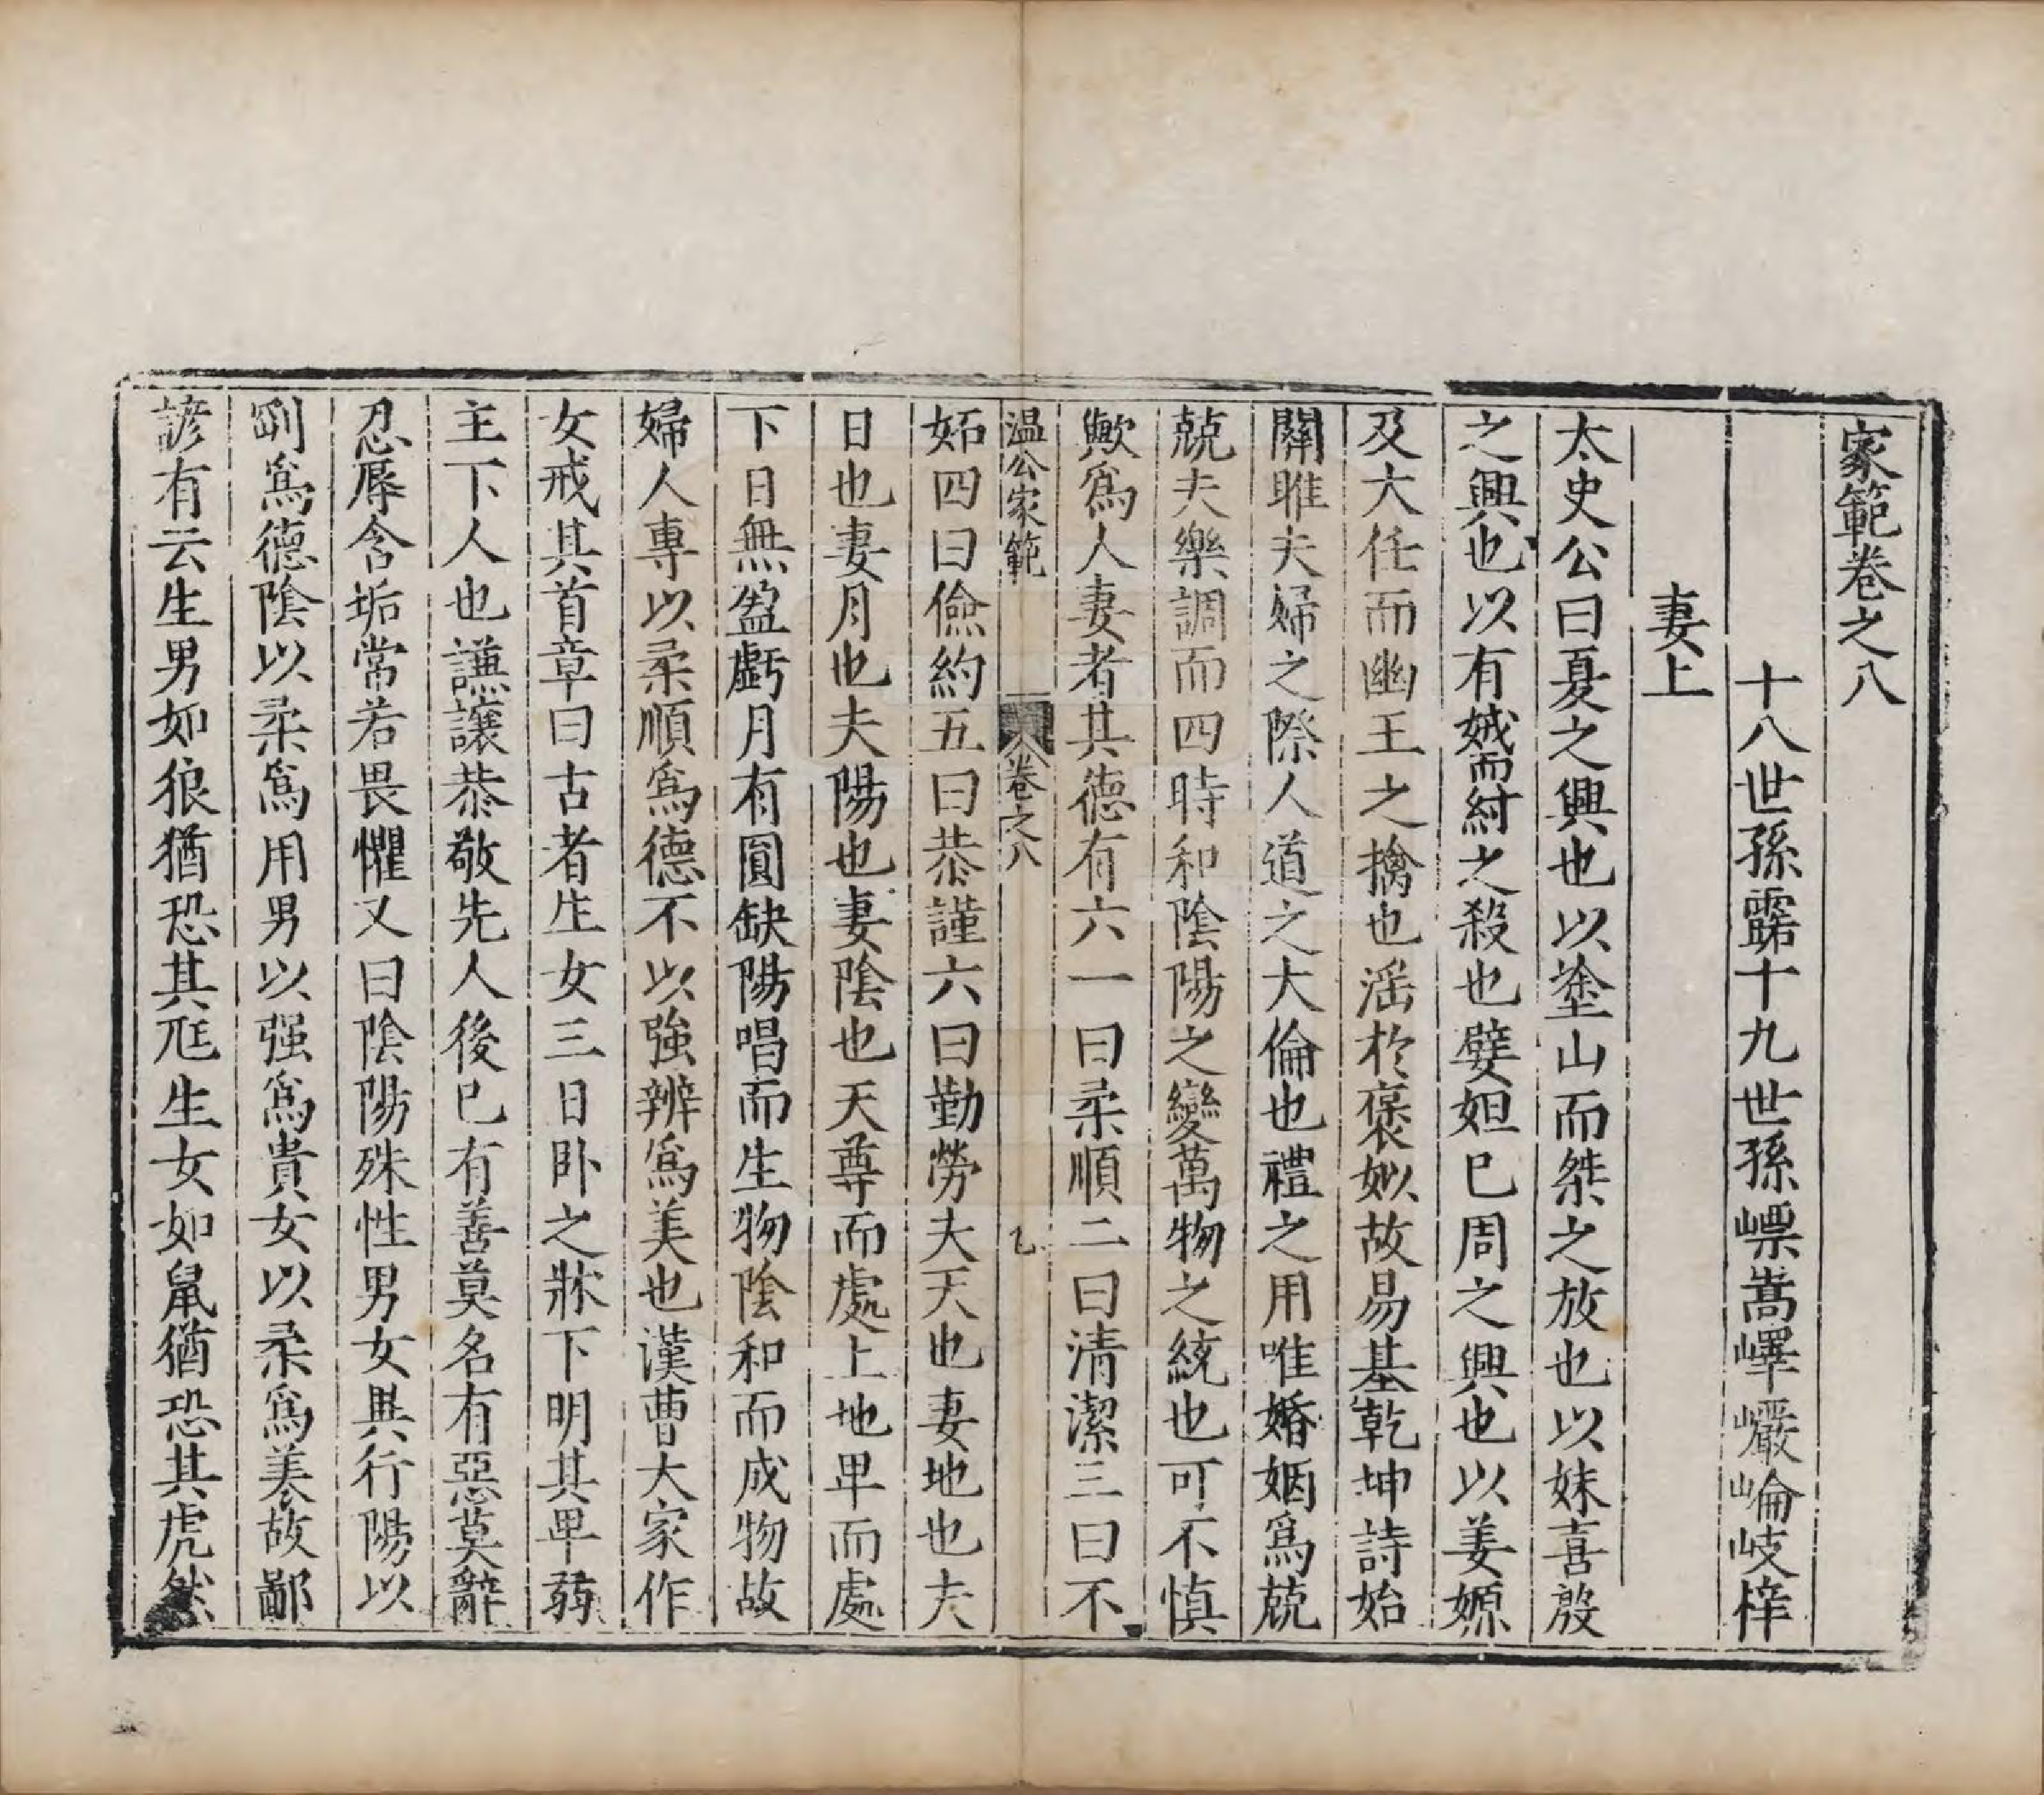 家範卷之八
十八世孫露十九世孫嵲嵩嶧巖崘岐梓
妻上
太史公曰夏之興也以塗山而桀之放也以妹喜殷
之興也以有娀而紂之殺也嬖妲已周之興也以姜嫄
及大任而幽王之擒也滛於褒姒故易基乾坤詩始
關雎夫婦之際人道之大倫也禮之用唯婚姻爲兢
兢夫樂調而四時和陰陽之變萬物之統也可不慎
歟爲人妻者其德有六一曰柔順二曰清潔三曰不
温公家範 卷之八 乙
妬四曰儉約五曰恭謹六曰勤勞夫天也妻地也夫
日也妻月也夫陽也妻陰也天尊而處上地卑而處
下日無盈虧月有圓缺陽唱而生物陰和而成物故
婦人專以柔順爲德不以強辨爲美也漢曹大家作
女戒其首章曰古者生女三日卧之牀下明其卑弱
主下人也謙讓恭敬先人後已有善莫名有惡莫辭
忍辱含垢常若畏懼又曰陰陽殊性男女異行陽以
剛爲德陰以柔爲用男以强爲貴女以柔爲美故鄙
諺有云生男如狼猶恐其尫生女如鼠猶恐其虎然